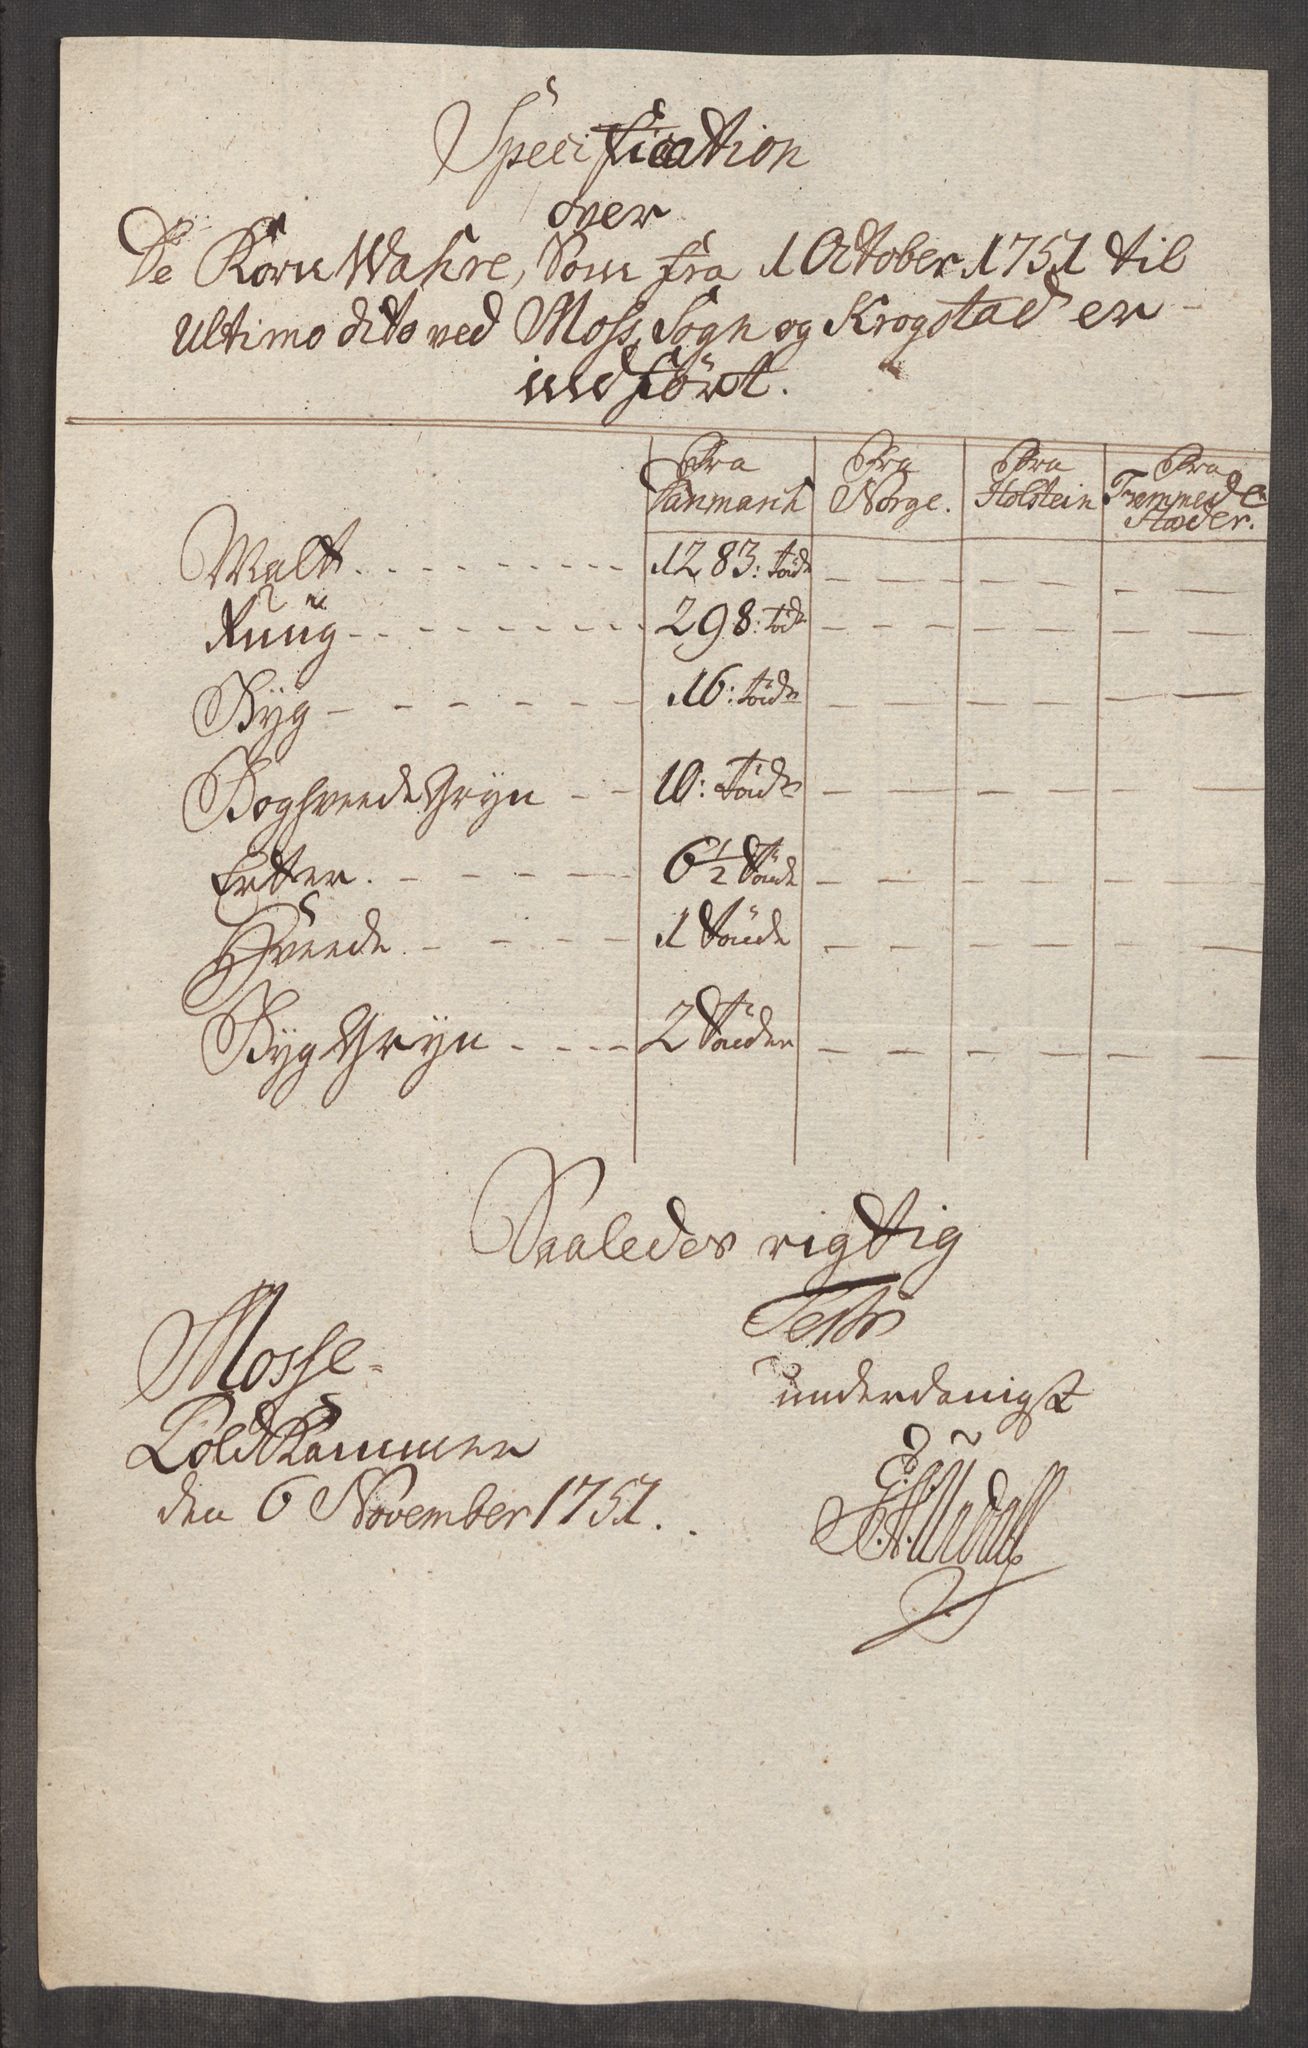 Specification
over
De Korn Wahre, Som fra 1 October 1751 til
Ultimo dito ved Moss, Sogn og Krogstad er
indført.
Fra Danmarch Fra Norge. Fra Holstein Fra Fremmede Stæder.
Malt 1283: tøndr
Rúúg 298: tødr
Byg 16: tøndr
Boghveede Gryn 10: Tøndr
Erter. 6 1/2 Tønde
Hveede 1 Tønde
Byg Gryn 2 Tønder
Saaledes rigtig
Test:
Mosse
underdanigst
Told Kammer
den 6 November 1751.